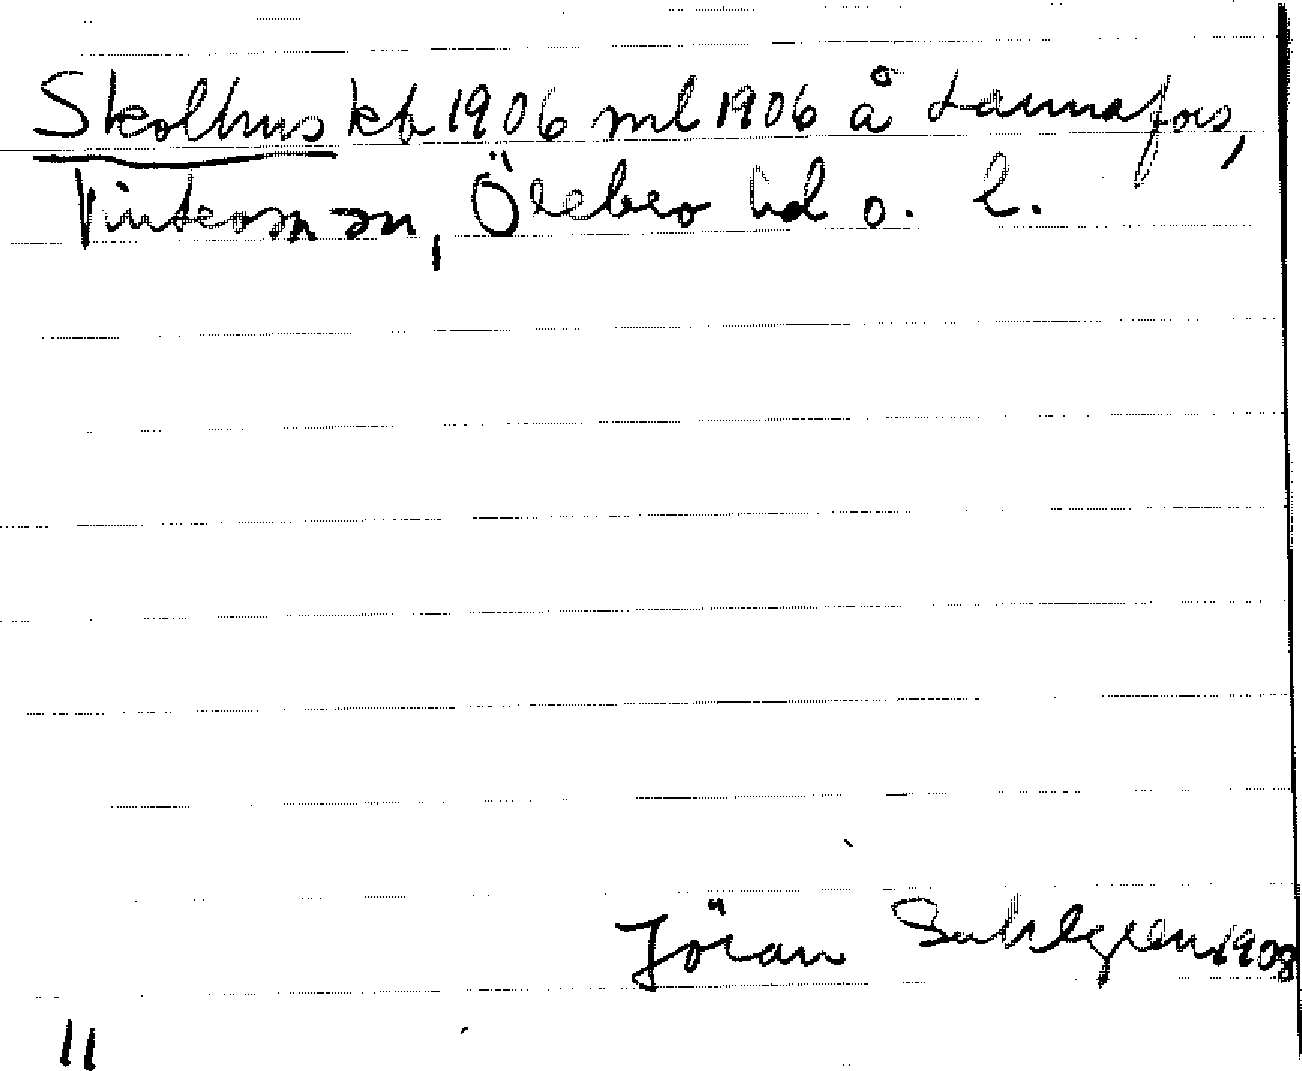 Skolhus kb 1906 ml 1906 å Lannafors,
Vintrosa sn, Örebro hd o. l.
Jöran Sahlgren 1908
11